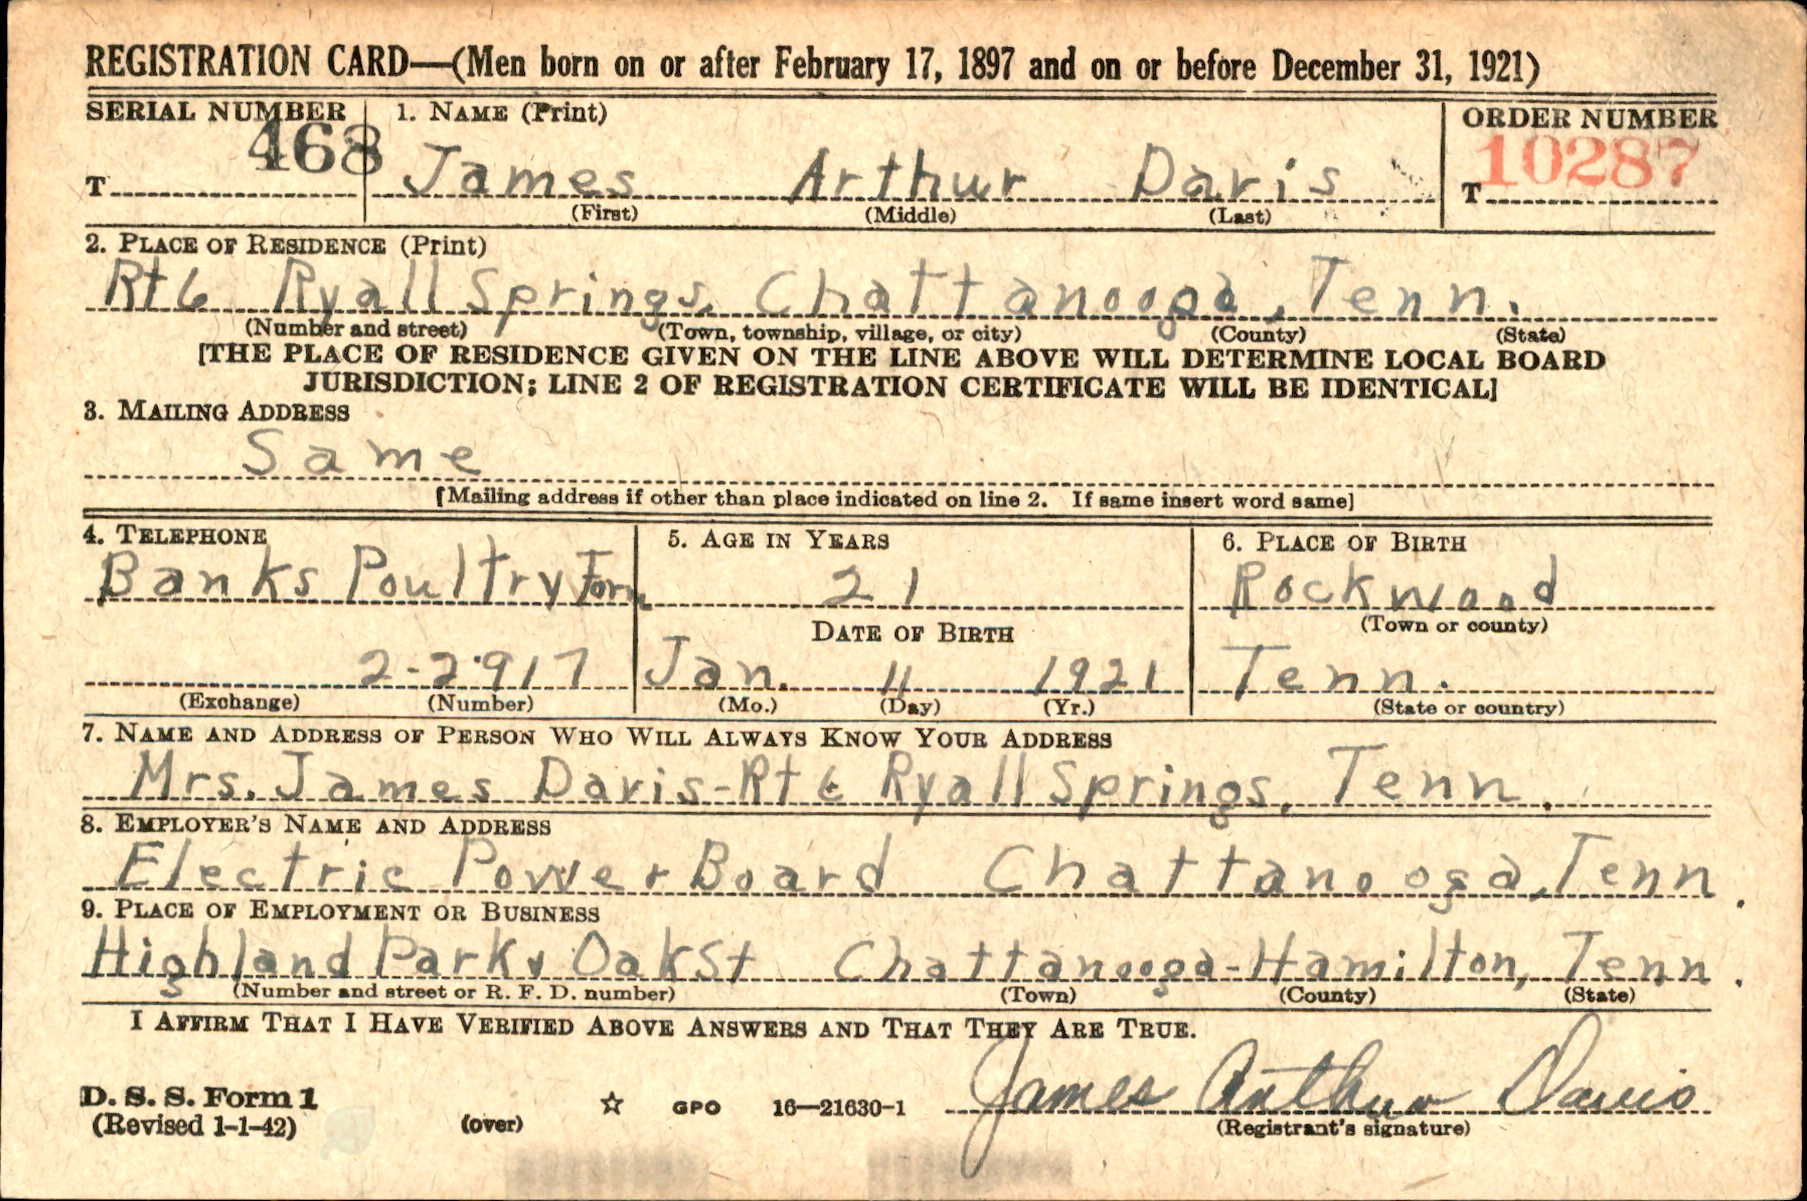 REGISTRATION CARD—(Men born on or after February 17, 1897 and on or before December 31, 1921)
SERIAL NUMBER 1. NAME (Print) ORDER NUMBER
T 468 James Arthur Davis T 10287
(First) (Middle) (Last)
2. PLACE OF RESIDENCE (Print)
Rt 6 Ryall Springs, Chattanooga, Tenn.
(Number and street) (Town, township, village, or city) (County) (State)
[THE PLACE OF RESIDENCE GIVEN ON THE LINE ABOVE WILL DETERMINE LOCAL BOARD
JURISDICTION; LINE 2 OF REGISTRATION CERTIFICATE WILL BE IDENTICAL]
3. MAILING ADDRESS
Same
[Mailing address if other than place indicated on line 2. If same insert word same]
4. TELEPHONE 5. AGE IN YEARS 6. PLACE OF BIRTH
Banks Poultry Farm 21 Rockwood
DATE OF BIRTH (Town or county)
2-2917 Jan. 11 1921 Tenn.
(Exchange) (Number) (Mo.) (Day) (Yr.) (State or country)
7. NAME AND ADDRESS OF PERSON WHO WILL ALWAYS KNOW YOUR ADDRESS
Mrs. James Davis-Rt 6 Ryall Springs, Tenn.
8. EMPLOYER'S NAME AND ADDRESS
Electric Power Board Chattanooga, Tenn.
9. PLACE OF EMPLOYMENT OR BUSINESS
Highland Park, Oak St Chattanooga-Hamilton, Tenn.
(Number and street or R. F. D. number) (Town) (County) (State)
I AFFIRM THAT I HAVE VERIFIED ABOVE ANSWERS AND THAT THEY ARE TRUE.
James Arthur Davis
D. S. S. Form 1
(Revised 1-1-42) (over) ☆ GPO 16—21630-1 (Registrant's signature)